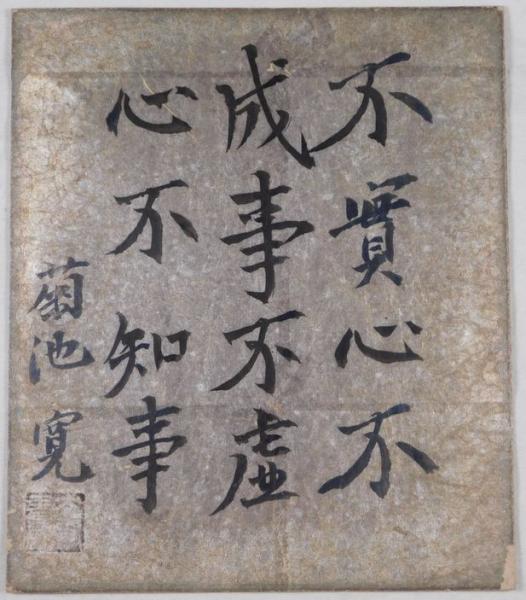 不實心不
成事不虚
心不知事
菊池寛